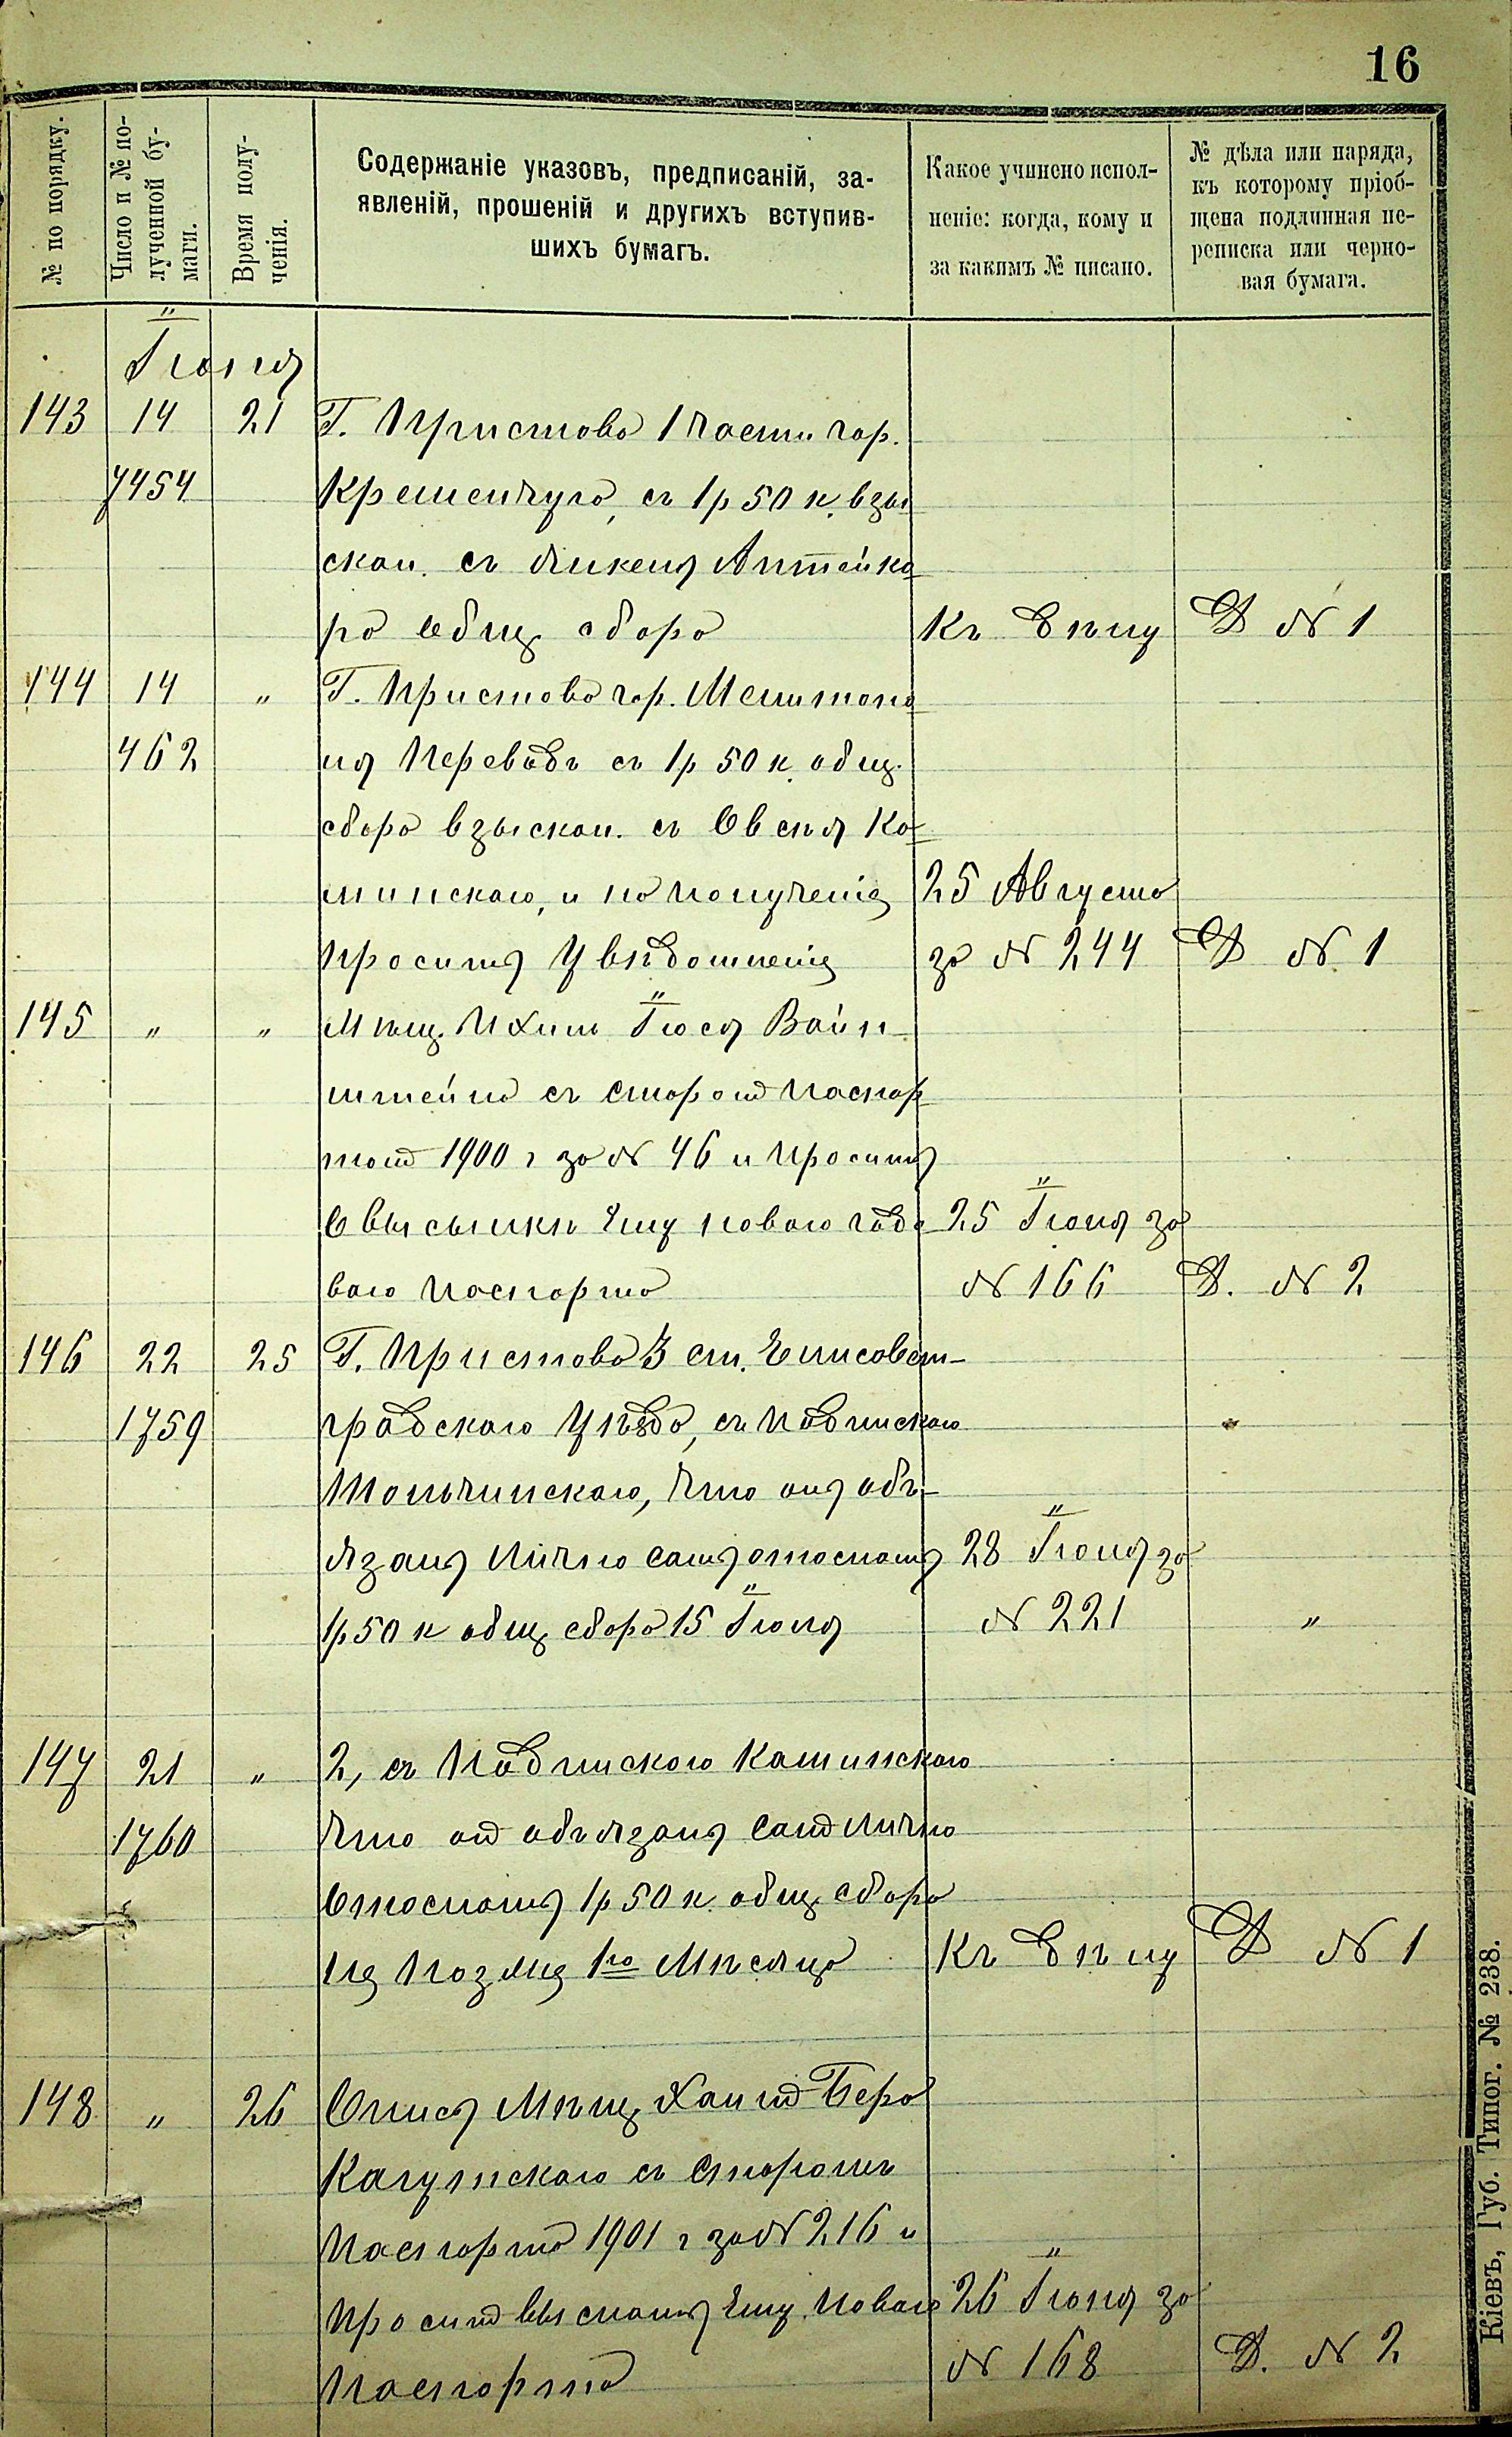 16
№ по порядку.
Число и № по-
лученной бу-
маги.
Время полу-
ченія.
Содержаніе указовъ, предписаній, за-
явленій, прошеній и другихъ вступив-
шихъ бумагъ.
Какое учинено испол-
неніе: когда, кому и
за какимъ № писано.
№ дѣла или наряда,
къ которому пріоб-
щена подлинная пе-
реписка или черно-
вая бумага.
Іюня
143 14 21 Г. Пристова 1 части гор.
7454 Кременчуга, съ 1р 50 к. взы
скан. съ Апштейна
ра общ сбора Къ дѣлу Д № 1
144 14 " Г. Пристова гор. Мелитопо
462 ля Переводъ съ 1р 50 к. общ.
сбора взыскан. съ Овсѣя Ка
минскаго, и по полученія
проситъ Увѣдомленія
25 Августа
за № 244 Д № 1
145 " " Мѣщ. Іося Вайн
штейна съ старом паспор
том 1900 г за № 46 и проситъ
О высылкѣ ему новаго годо 25 Іюня за
ваго паспорта № 166 Д. № 2
146 22 25 Г. Пристова 3 ст. Елисовет-
1759 градскаго Уѣзда, съ подпискаго
Тольчинскаго, что онъ объ-
язанъ лично самъ отослать 28 Іюня за
1р 50 к общ сбора 15 Іюля № 221 "
147 21 " 2, съ Подпискаго Каминскаго
1760 что он объязанъ сам лично
Отослать 1р 50 к. общ. сбора
не позже 1го Мѣсяца Къ дѣлу Д № 1
148 " 26 Мѣщ. Бера
съ старомъ
Паспорта 1901 г за № 216 и
просит выслать ему новаго 26 Іюня за
Паспорта № 168 Д. № 2
Кіевъ, Губ. Типог. № 238.